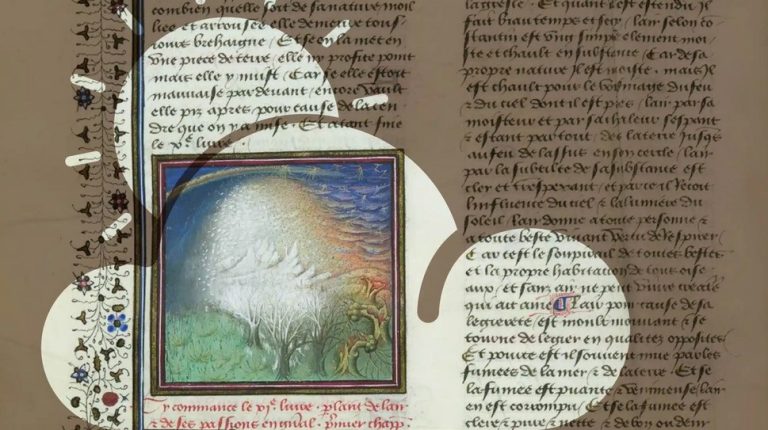 combien quelle soit de sa nature moil
lie et arrousee elle demeure tous
iours brehaigne / Et se on la met en
vne piece de terre / elle ny profite point
mais elle y nuist / Car se elle estoit
mauuaise par deuant / encore vault
elle piz apres / pour cause de la cen
dre que on y a mise / Et atant fine
le xe. liure /
Cy commance le xie. liure . plant de lair
& de ses passions en gnal . pmier chapp.
la gresse / Et quant lest estendu Il
fait beau temps et sey / lair selon co
stantin est vng simple element moi
ste et chault en substance / Car de sa
propre nature Il est moiste . mais Il
est chault pour le voisinage du feu
& du ciel dont il est pres / lair par sa
moisteur et par sa chaleur sespant
& estant par tout / des la terre Jusqs
au feu de la sfus en son cercle / lair
par la subtilte de sa substance est
cler et tresperant / et par ce Il recoit
linfluence du ciel & la lumiere du
soleil / lair donne a toute personne &
a toute beste viuant vertu de respirer /
Car cest le souspirail de toutes bestes
et la propre habitation de tous oise
aux / et sans air ne peut viure creatē
qui ait ame / Lair pour cause de sa
legierete / est moult mouuant & se
tourne de legier en qualitez opposites /
Et pource est il souuent mue par les
fumees de la mer / & de la terre / Et se
la fumee est puante & venimeuse / lair
en est corrompu / Et se la fumee est
clere / pure / & nette / & de bon oudeur